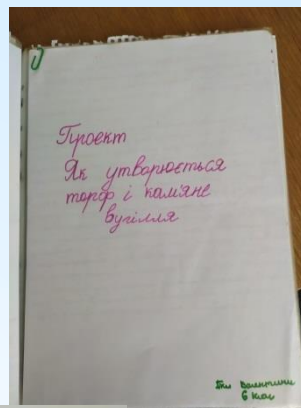 Проект
Як утворюється
торф і камяне
вугілля
Валентини
6 клас